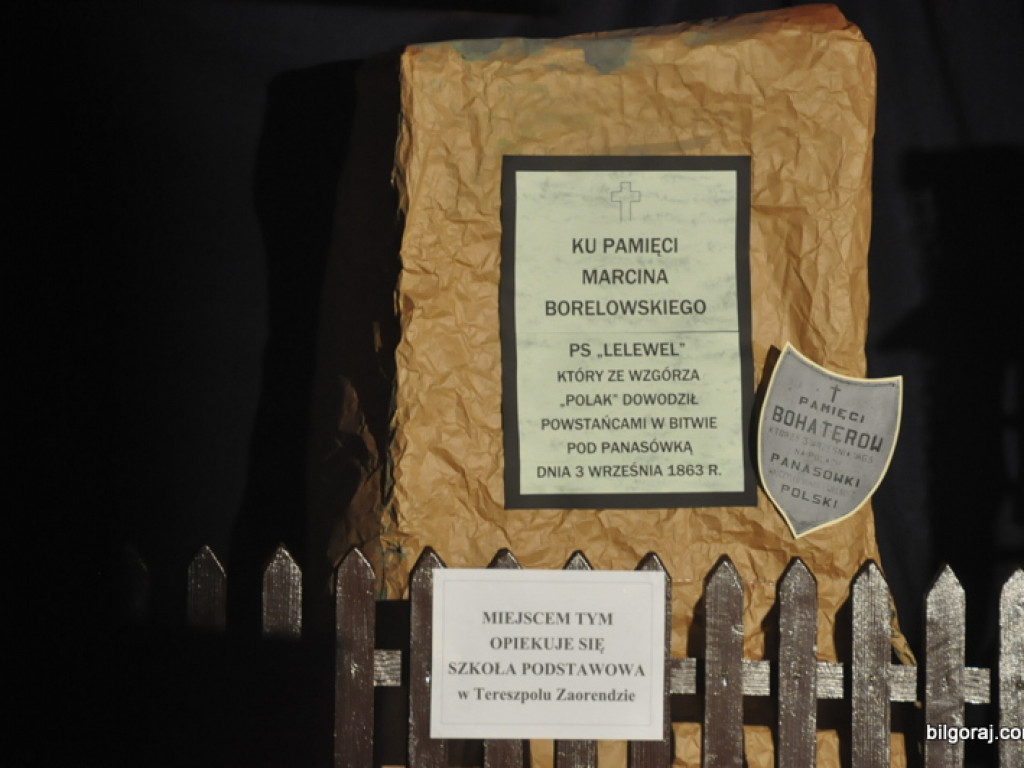 KU PAMIĘCI
MARCINA
BORELOWSKIEGO
PS „LELEWEL”
KTÓRY ZE WZGÓRZA
„POLAK” DOWODZIŁ
POWSTAŃCAMI W BITWIE
POD PANASÓWKĄ
DNIA 3 WRZEŚNIA 1863 R.
PAMIĘCI
BOHATERÓW
PANASÓWKI
POLSKI
MIEJSCEM TYM
OPIEKUJE SIĘ
SZKOŁA PODSTAWOWA
w Tereszpolu Zaorendzie
bilgoraj.com